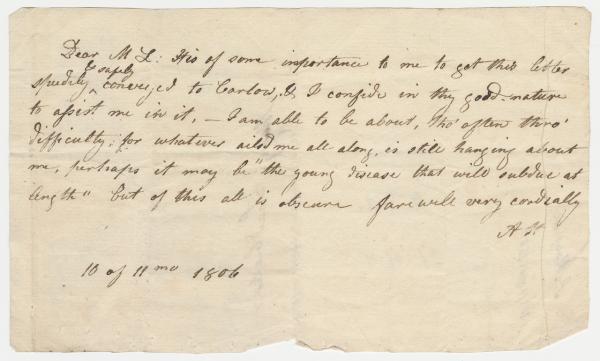 Dear M L: It is of some importance to me to get this letter
speedily & safely conveyed to Carlow, & I confide in thy good-nature
to assist me in it, — I am able to be about, tho' often thro'
difficulty; for whatever ailed me all along, is still hanging about
me, perhaps it may be "the young disease that will subdue at
length" but of this all is obscure farewell very cordially
A S
10 of 11 mo 1806